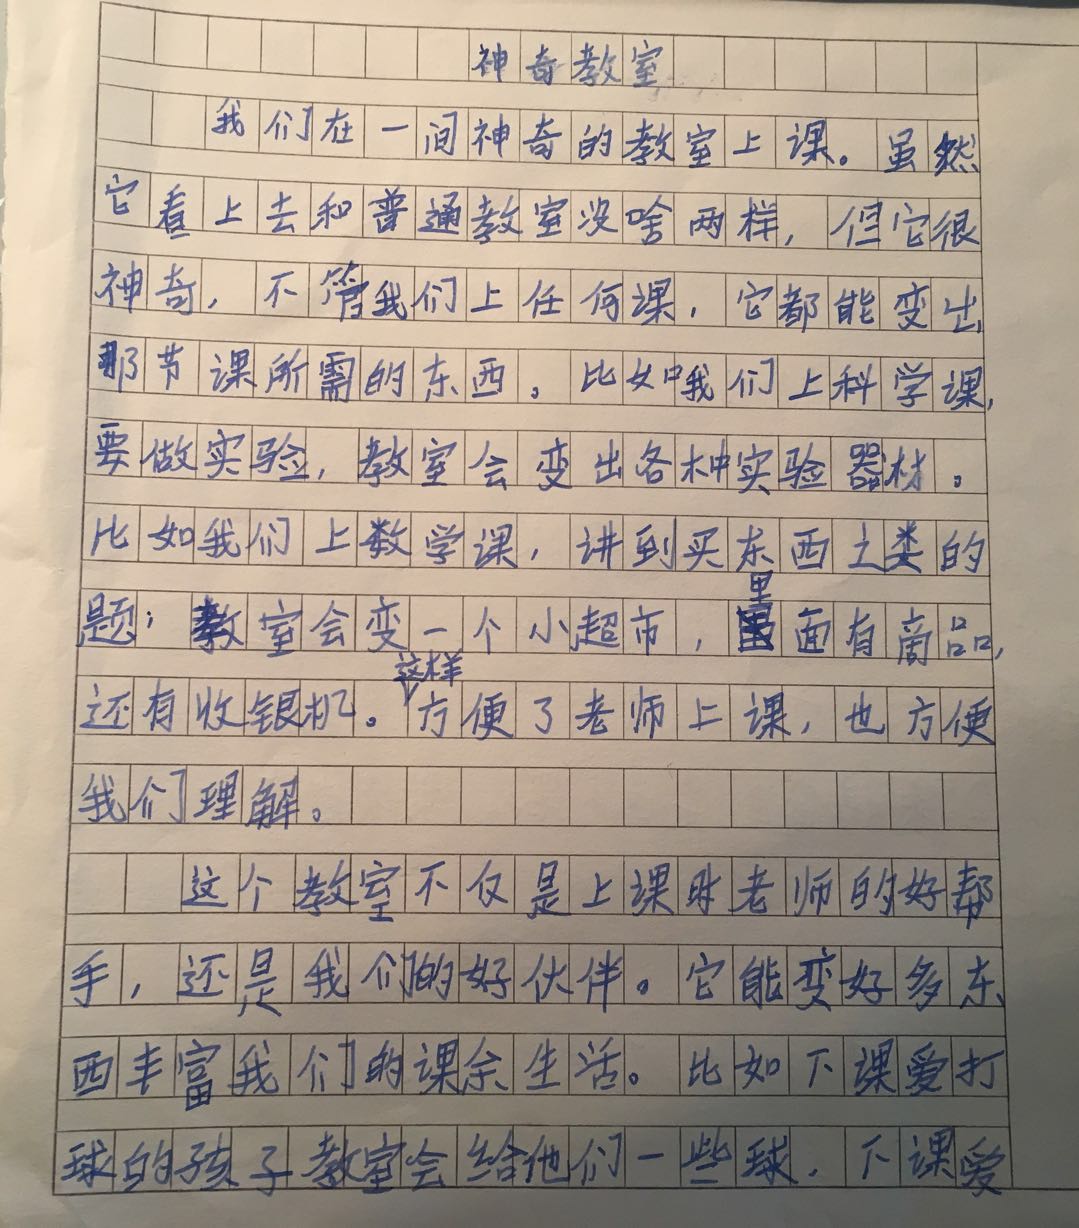 神奇教室
我们在一间神奇的教室上课。虽然
它看上去和普通教室没啥两样，但它很
神奇，不管我们上任何课，它都能变出
那节课所需的东西。比如我们上科学课，
要做实验，教室会变出各种实验器材。
比如我们上数学课，讲到买东西之类的
题；教室会变一个小超市，里面有商品，
还有收银机。这样方便了老师上课，也方便
我们理解。
这个教室不仅是上课时老师的好帮
手，还是我们的好伙伴。它能变好多东
西丰富我们的课余生活。比如下课爱打
球的孩子教室会给他们一些球，下课爱